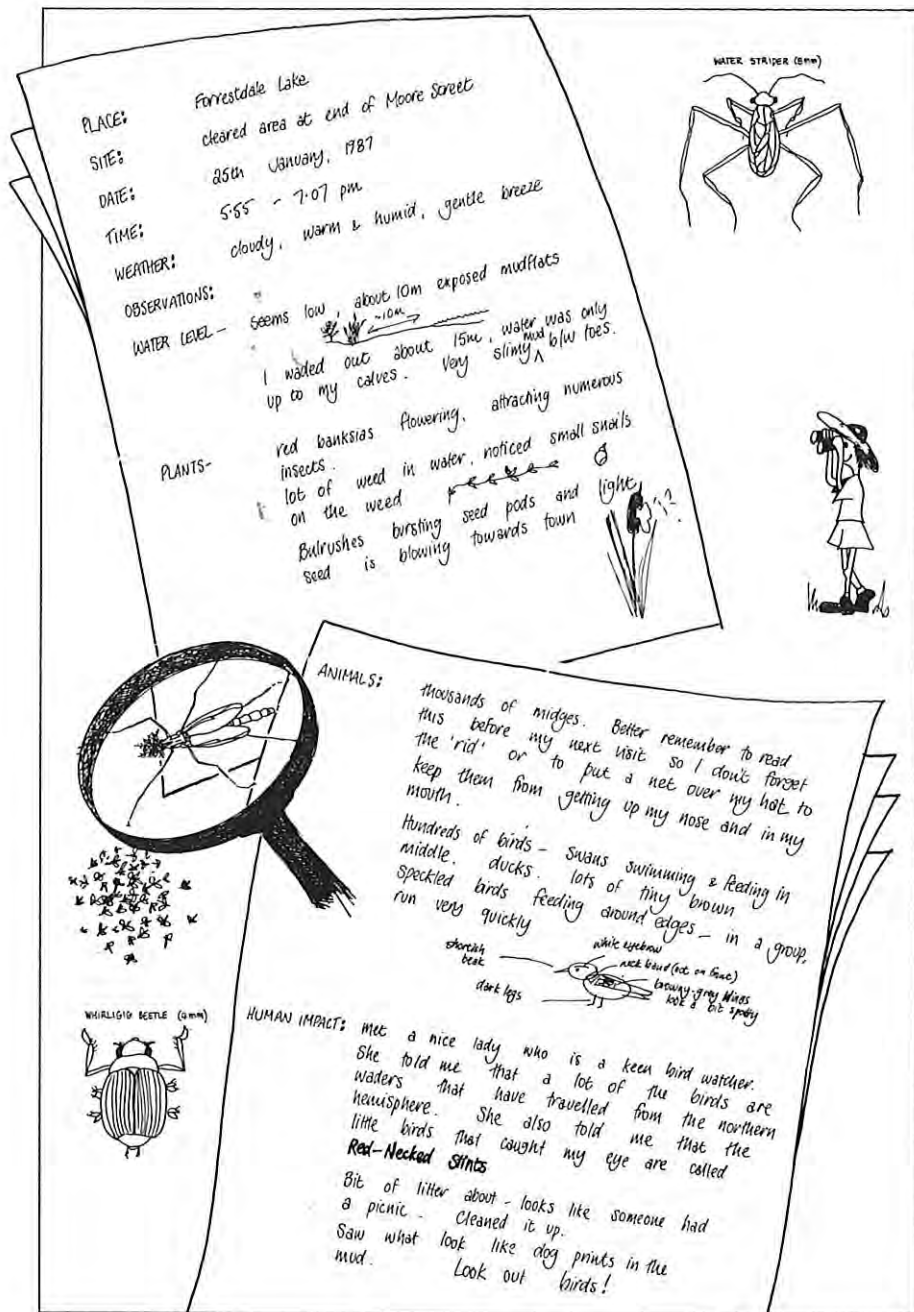 WATER STRIDER (8mm)
PLACE: Forrestdale Lake
SITE: cleared area at end of Moore Street
DATE: 25th January, 1987
TIME: 5.55 - 7.07 pm
WEATHER: cloudy, warm & humid, gentle breeze
OBSERVATIONS:
WATER LEVEL - seems low, about 10m exposed mudflats
~10m
I waded out about 15m, water was only
up to my calves. Very slimy mud b/w toes.
PLANTS- red banksias flowering, attracting numerous
insects.
lot of weed in water, noticed small snails
on the weed
Bulrushes bursting seed pods and light
seed is blowing towards town
ANIMALS: thousands of midges. Better remember to read
this before my next visit so I don't forget
the 'rid' or to put a net over my hat to
keep them from getting up my nose and in my
mouth.
Hundreds of birds - swans swimming & feeding in
middle. ducks. lots of tiny brown
speckled birds feeding around edges - in a group,
run very quickly
shortish
beak
white eyebrow
neck band (not on front)
browny-grey wings
look a bit spotty
dark legs
WHIRLIGIG BEETLE (9mm)
HUMAN IMPACT: met a nice lady who is a keen bird watcher.
She told me that a lot of the birds are
waders that have travelled from the northern
hemisphere. She also told me that the
little birds that caught my eye are called
Red-Necked Stints
Bit of litter about - looks like someone had
a picnic. Cleaned it up.
Saw what look like dog prints in the
mud. Look out birds!